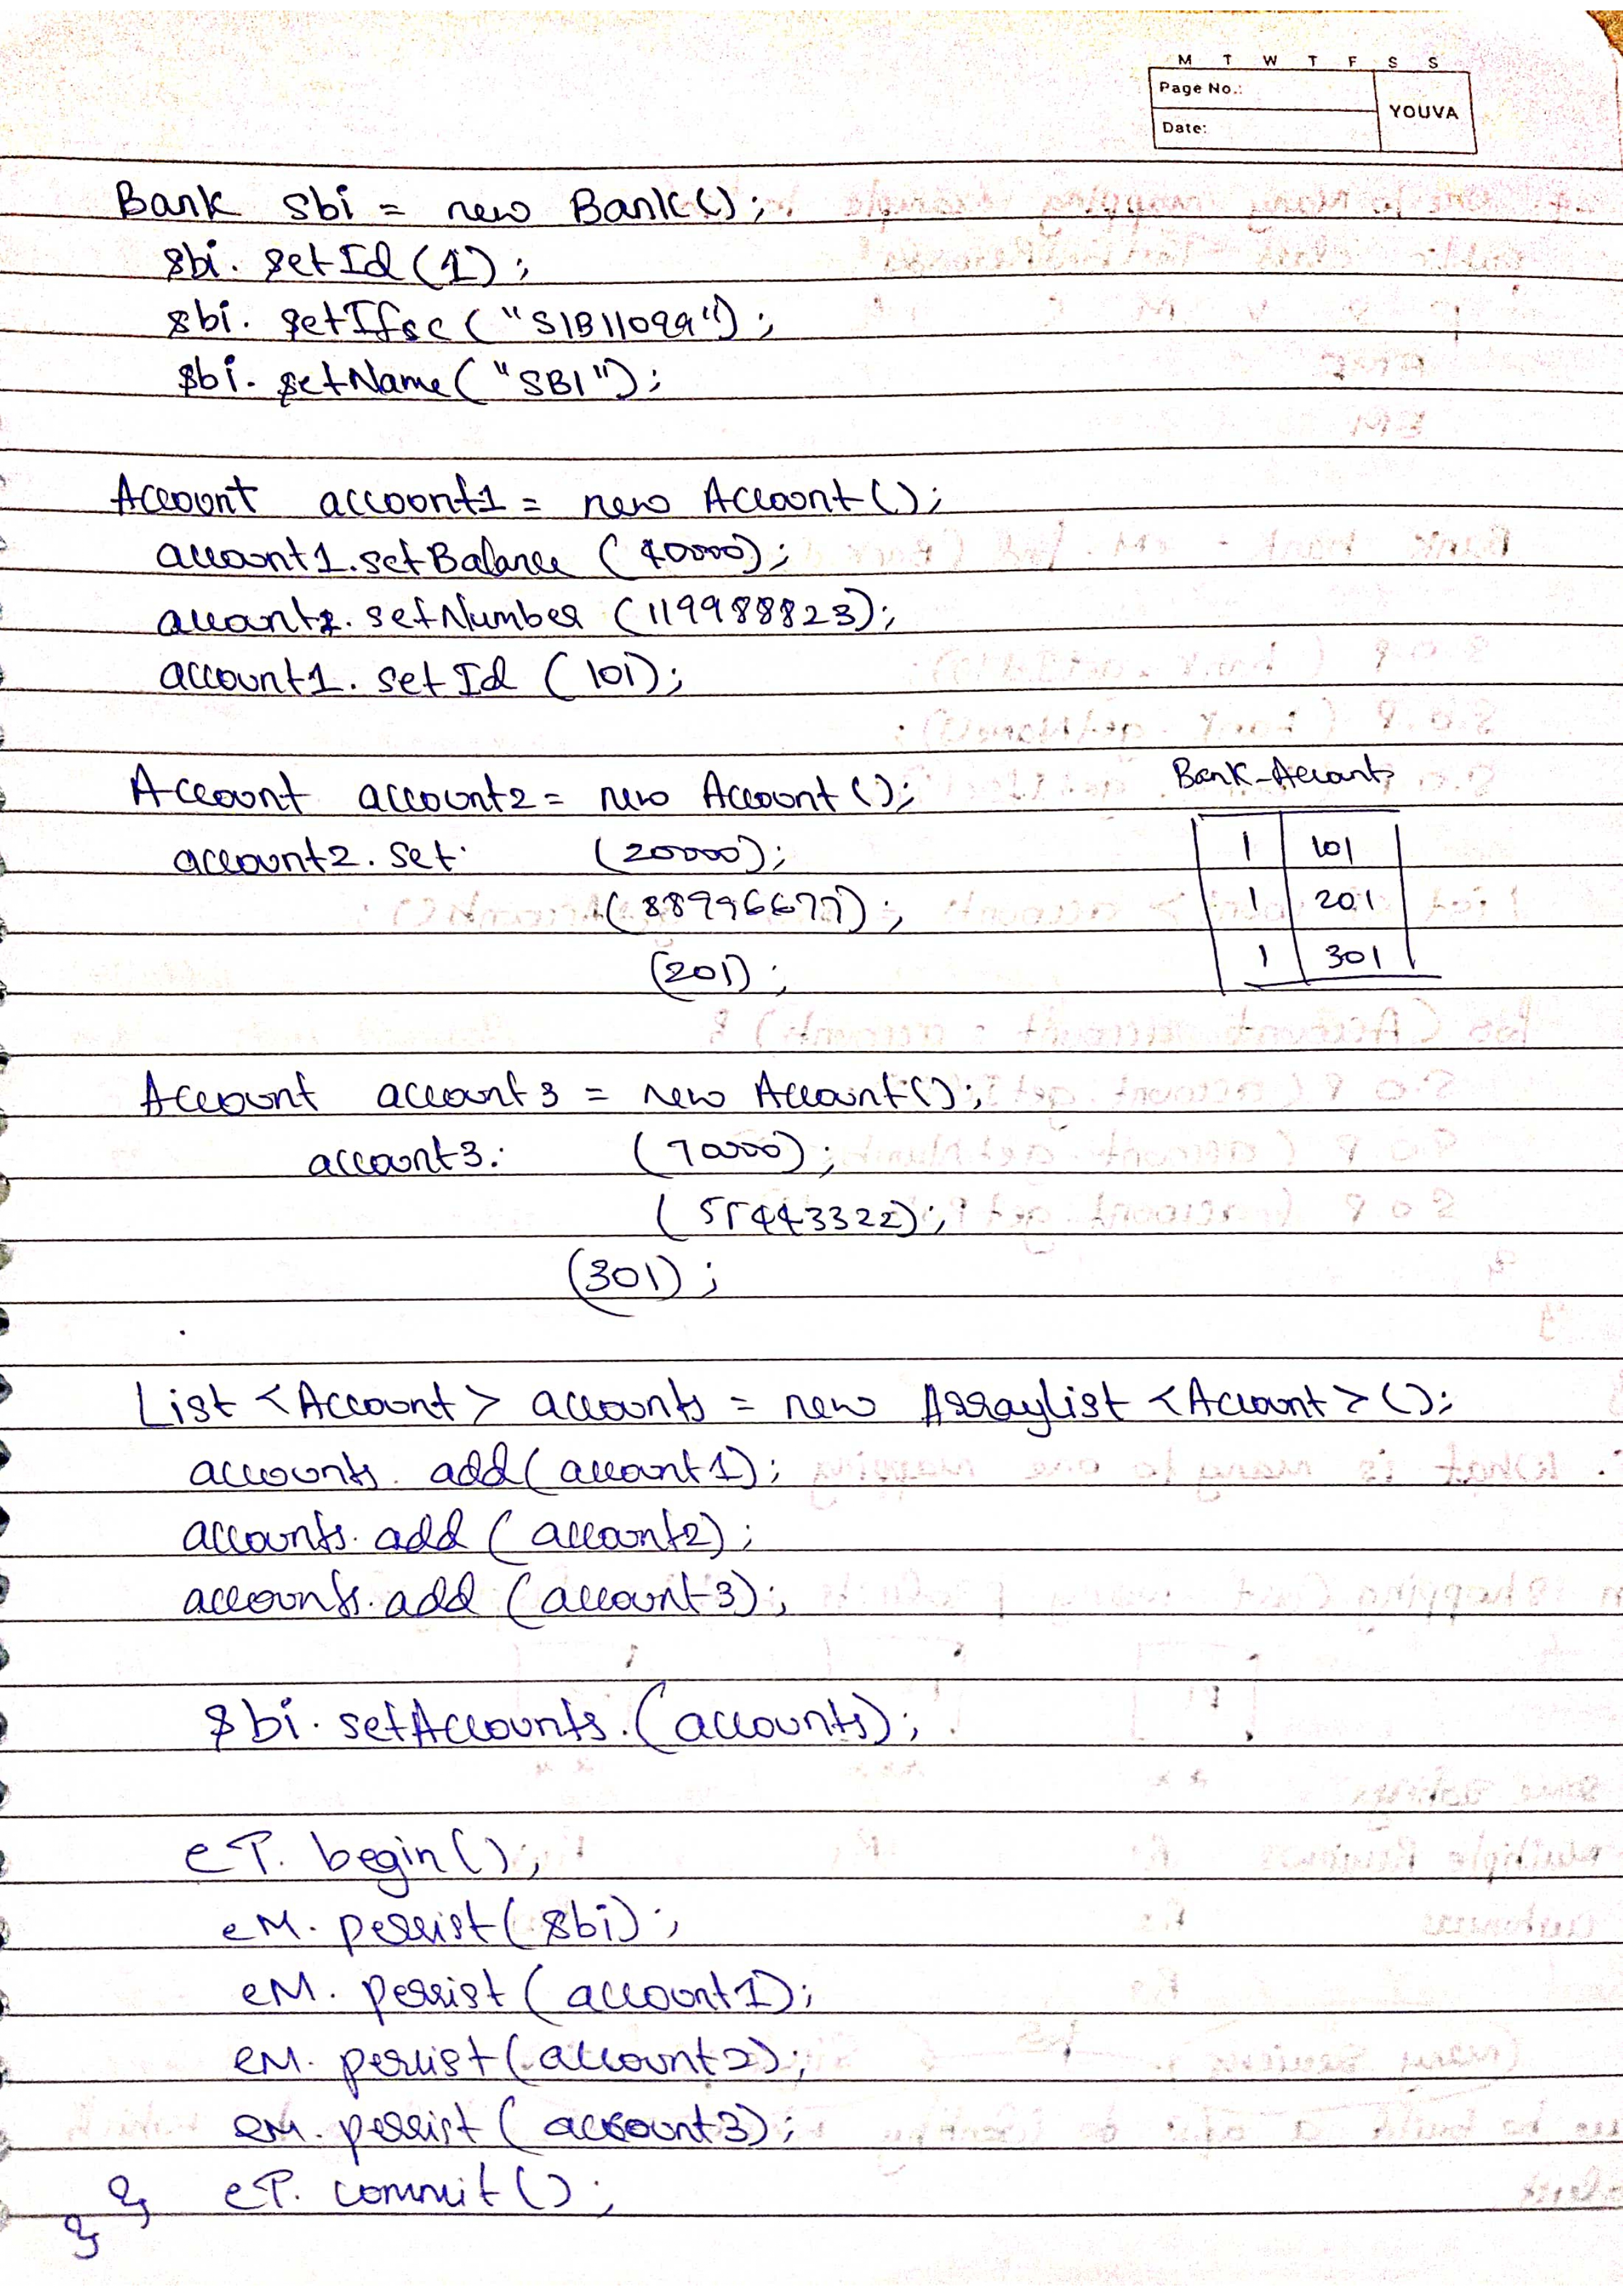 M T W T F S S
Page No.:
YOUVA
Date:
Bank sbi = new Bank();
sbi. setId (1);
sbi. setIfsc ("SIB11099");
sbi. setName ("SBI");
Account account1 = new Account();
account1.setBalance (40000);
account1. setNumber (119988823);
account1. setId (101);
Account account2 = new Account();
account2. set (20000);
(88996677);
(201);
Bank-Accounts
1 101
1 201
1 301
Account account3 = new Account();
account3. (70000);
(55443322);
(301);
List <Account> accounts = new ArrayList <Account> ();
accounts. add(account1);
accounts. add (account2);
accounts. add (account3);
sbi. setAccounts. (accounts);
eT. begin();
eM. persist(sbi);
eM. persist (account1);
eM. persist(account2);
eM. persist (account3);
} eT. commit();
}